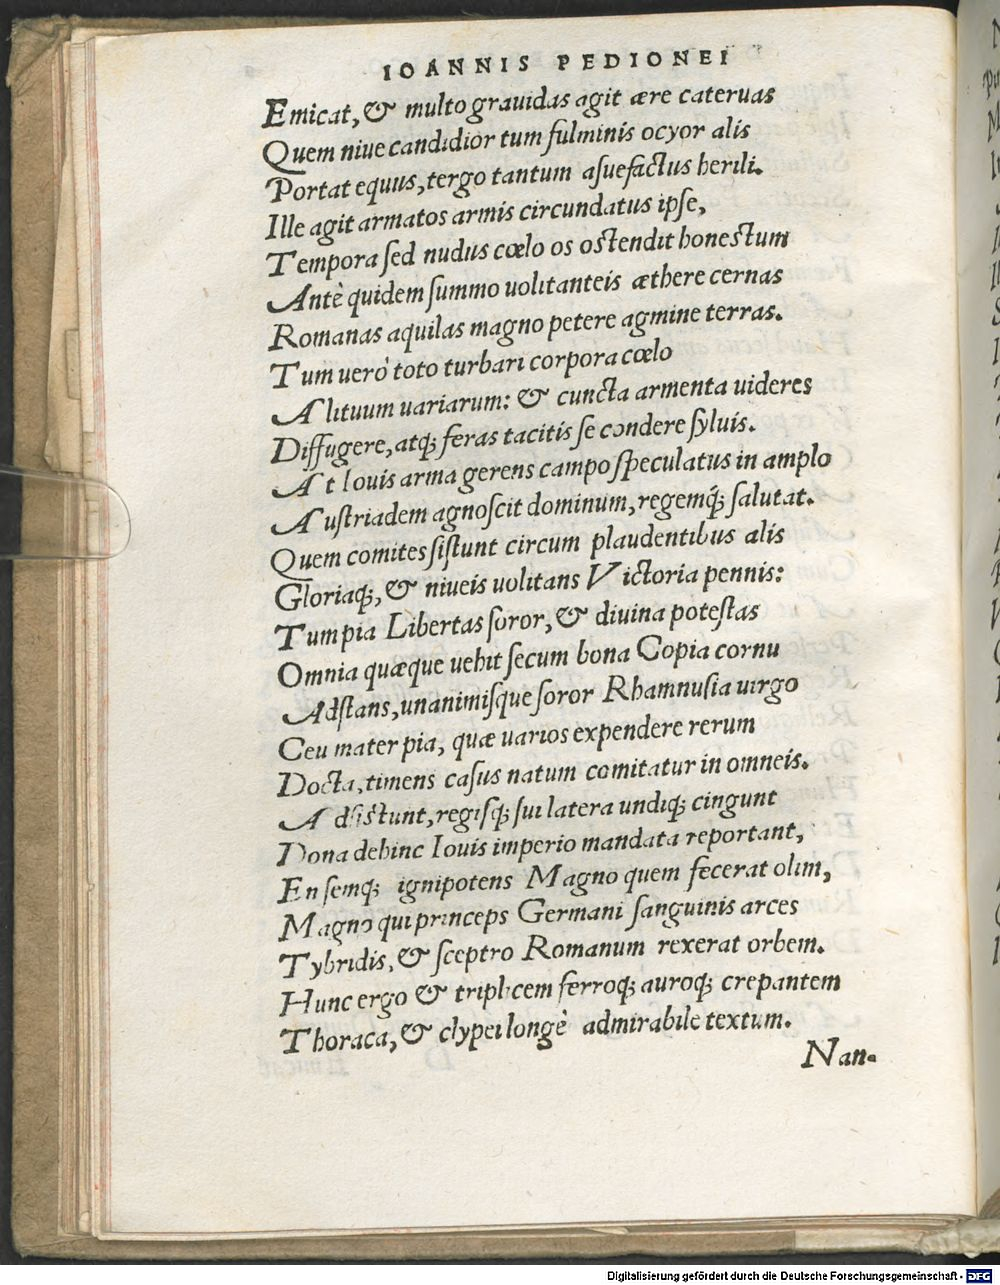 IOANNIS PEDIONEI
Emicat, & multo grauidas agit ære cateruas
Quem niue candidior tum fulminis ocyor alis
Portat equus, tergo tantum aſuefactus herili.
Ille agit armatos armis circundatus ipſe,
Tempora ſed nudus cœlo os oſtendit honeſtum
Antè quidem ſummo uolitanteis æthere cernas
Romanas aquilas magno petere agmine terras.
Tum uerò toto turbari corpora cœlo
Alituum uariarum: & cuncta armenta uideres
Diffugere, atq; feras tacitis ſe condere ſyluis.
At Iouis arma gerens campo ſpeculatus in amplo
Auſtriadem agnoſcit dominum, regemq́; ſalutat.
Quem comites ſiſtunt circum plaudentibus alis
Gloriaq;, & niueis uolitans Victoria pennis:
Tum pia Libertas ſoror, & diuina poteſtas
Omnia quæque uehit ſecum bona Copia cornu
Adſtans, unanimiſque ſoror Rhamnuſia uirgo
Ceu mater pia, quæ uarios expendere rerum
Docta, timens caſus natum comitatur in omneis.
Adſiſtunt, regiſq; ſui latera undiq; cingunt
Dona dehinc Iouis imperio mandata reportant,
Enſemq; ignipotens Magno quem fecerat olim,
Magno qui princeps Germani ſanguinis arces
Tybridis, & ſceptro Romanum rexerat orbem.
Hunc ergo & triplicem ferroq; auroq; crepantem
Thoraca, & clypei longè admirabile textum.
Nan-
Digitalisierung gefördert durch die Deutsche Forschungsgemeinschaft - DFG